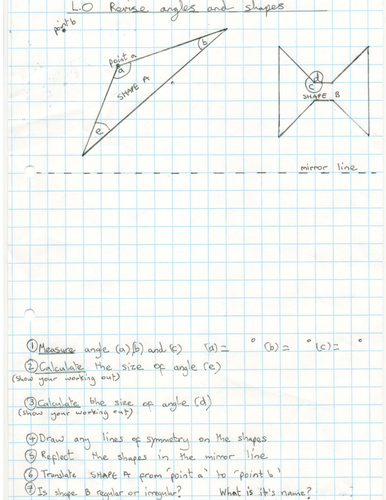 L.O Revise angles and shapes
point b
point a
a
b
SHAPE A
e
d
c
SHAPE B
mirror line
① Measure angle (a) (b) and (c) (a) = ° (b) = ° (c) = °
② Calculate the size of angle (e)
(show your working out)
③ Calculate the size of angle (d)
(show your working out)
④ Draw any lines of symmetry on the shapes
⑤ Reflect the shapes in the mirror line
⑥ Translate SHAPE A from 'point a' to 'point b'
⑦ Is shape B regular or irregular? What is it's name? ?